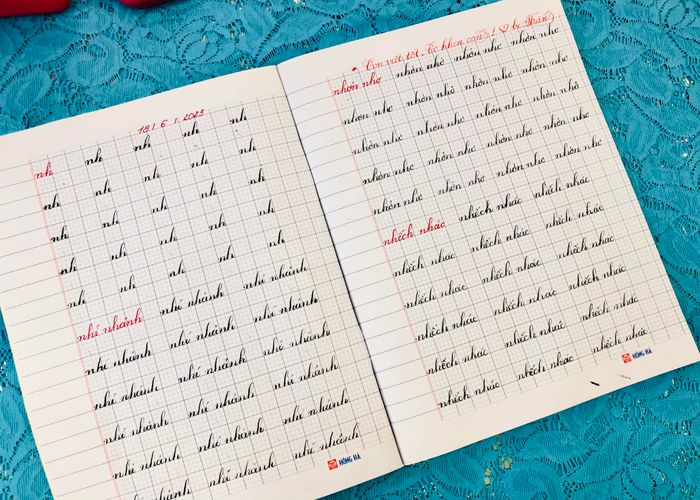 18/6/2023
nh nh nh nh nh
nh nh nh nh nh
nh nh nh nh nh
nh nh nh nh nh
nh nh nh nh nh
nhí nhảnh nhí nhảnh nhí nhảnh
nhí nhảnh nhí nhảnh nhí nhảnh
nhí nhảnh nhí nhảnh nhí nhảnh
nhí nhảnh nhí nhảnh nhí nhảnh
nhí nhảnh nhí nhảnh nhí nhảnh
nhí nhảnh nhí nhảnh nhí nhảnh
HỒNG HÀ
Con viết tốt. Cô khen con! bé
nhởn nhơ nhởn nhơ nhởn nhơ nhởn nhơ
nhởn nhơ nhởn nhơ nhởn nhơ nhởn nhơ
nhởn nhơ nhởn nhơ nhởn nhơ nhởn nhơ
nhởn nhơ nhởn nhơ nhởn nhơ nhởn nhơ
nhởn nhơ nhởn nhơ nhởn nhơ nhởn nhơ
nhếch nhác nhếch nhác nhếch nhác
nhếch nhác nhếch nhác nhếch nhác
nhếch nhác nhếch nhác nhếch nhác
nhếch nhác nhếch nhác nhếch nhác
nhếch nhác nhếch nhác nhếch nhác
nhếch nhác nhếch nhác nhếch nhác
HỒNG HÀ